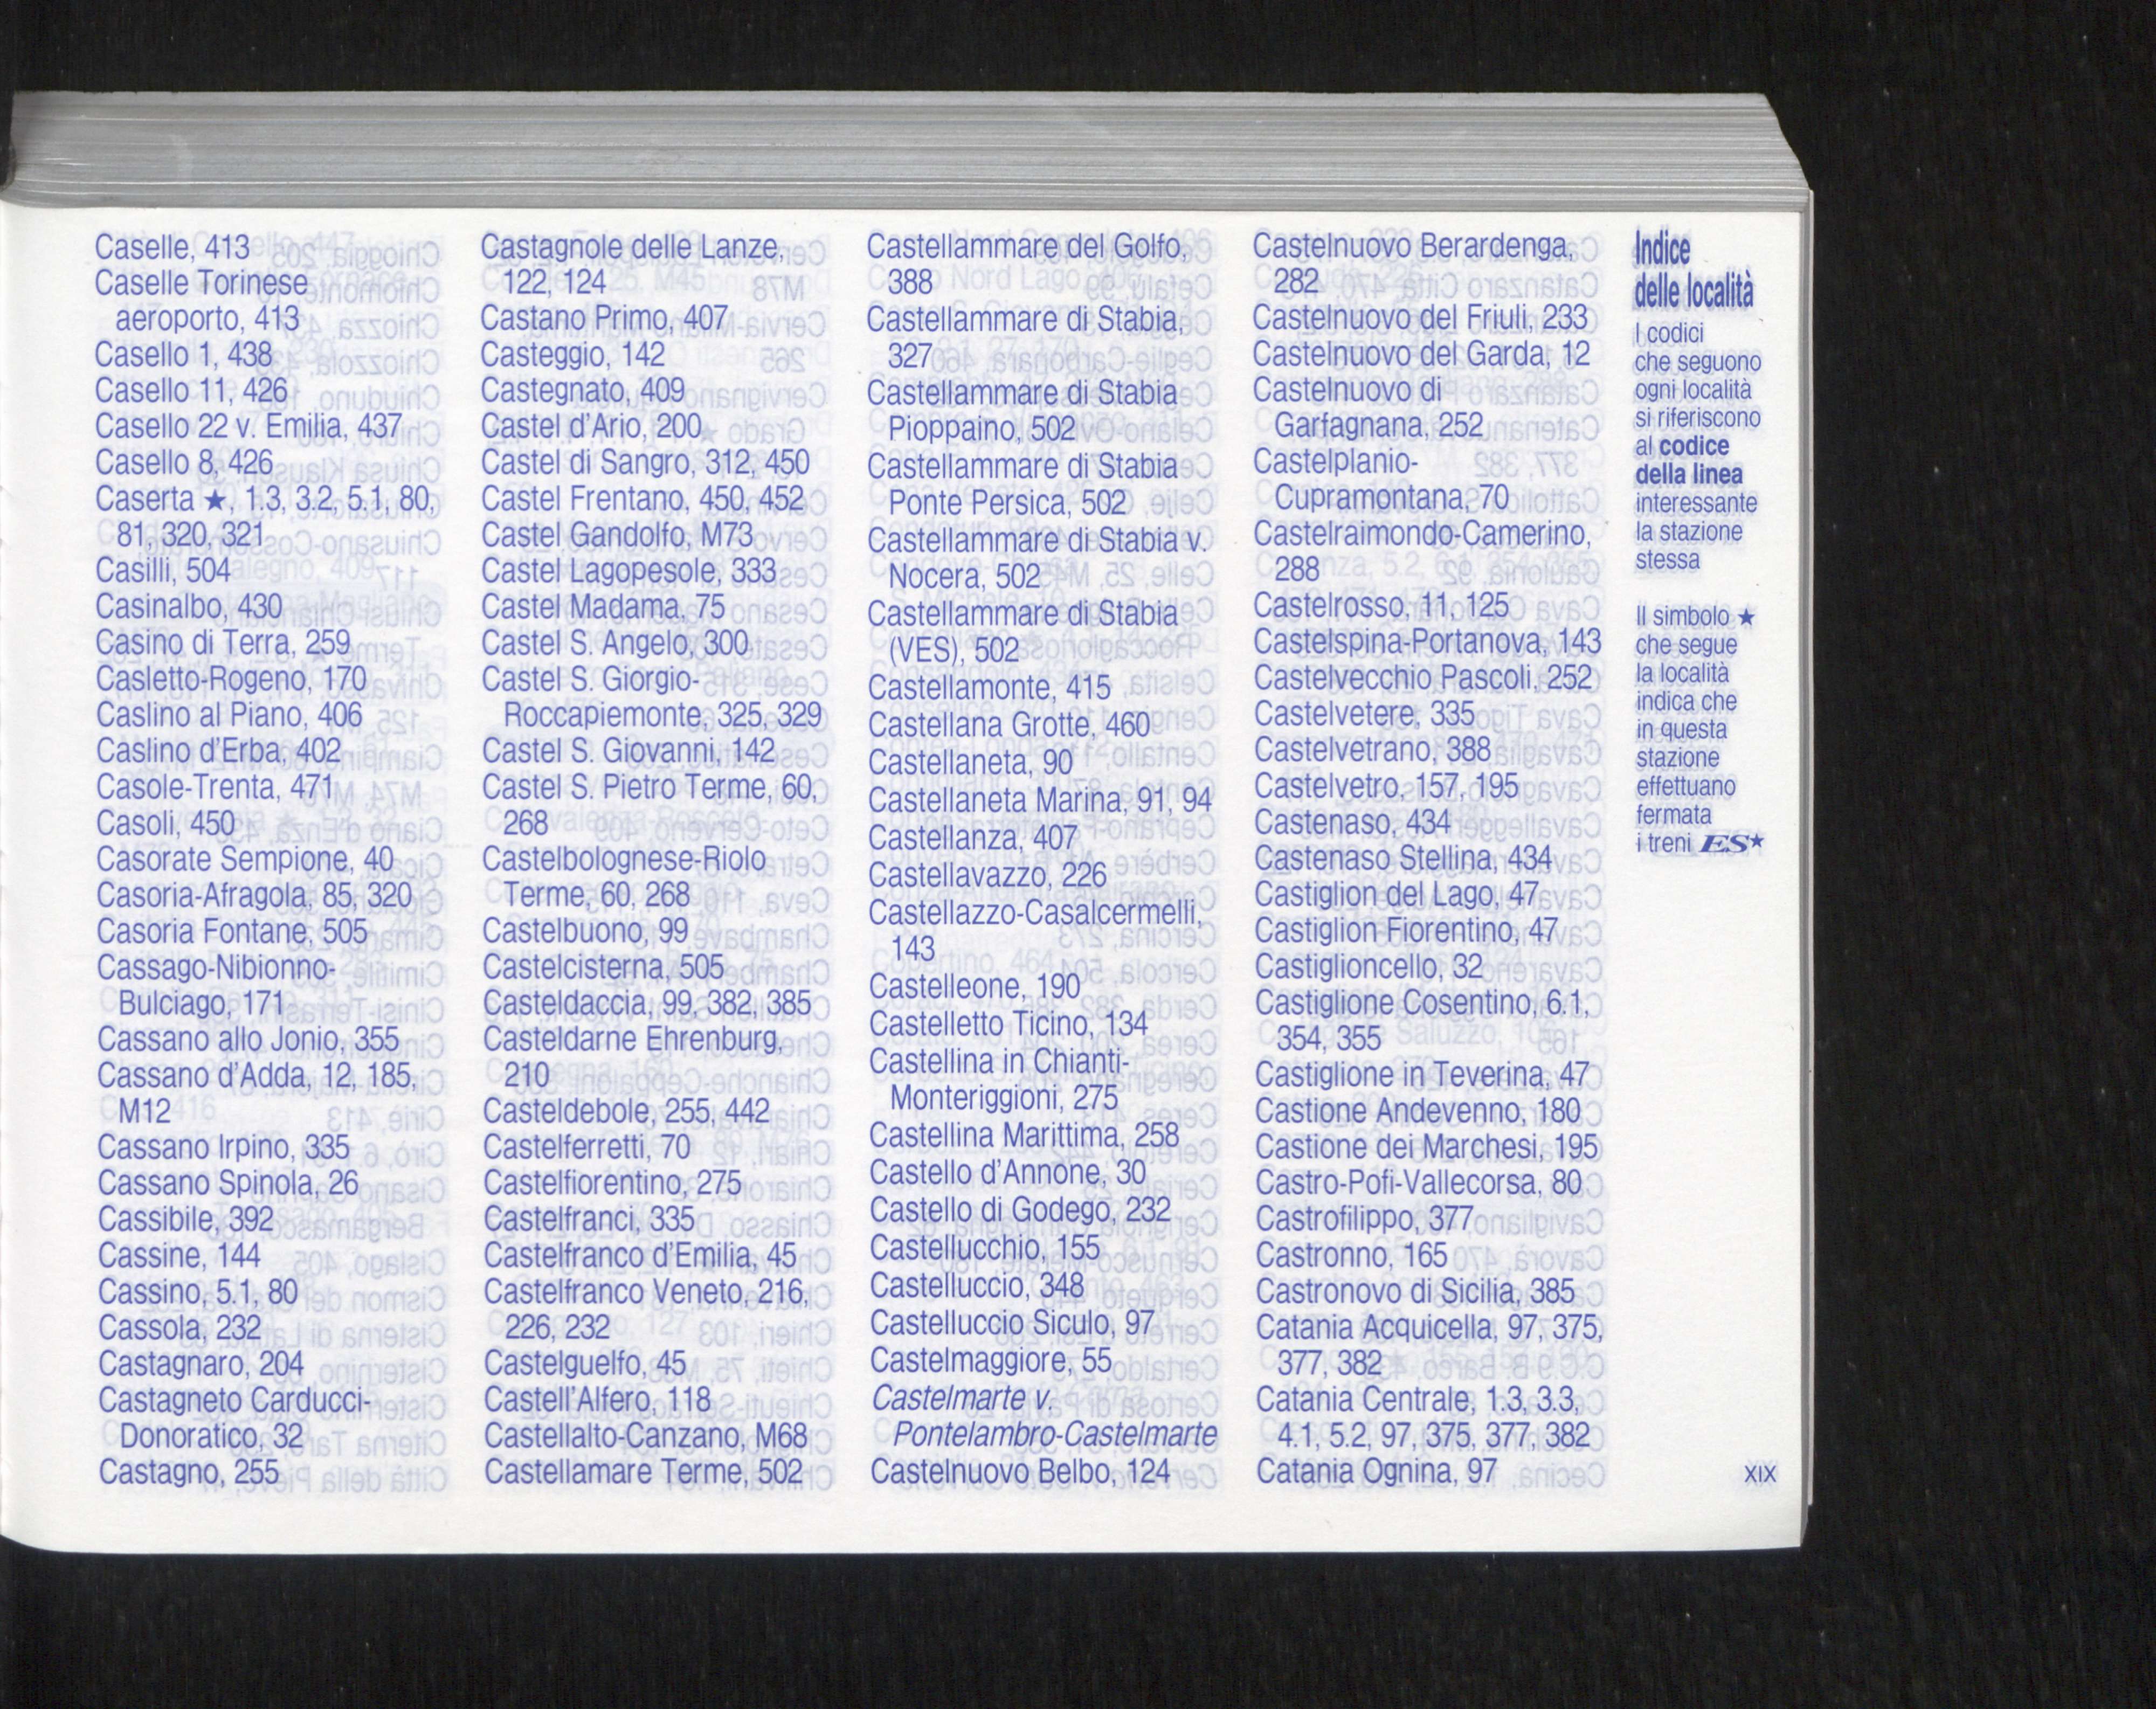 Caselle, 413
Caselle Torinese
aeroporto, 413
Casello 1, 438
Casello 11, 426
Casello 22 v. Emilia, 437
Casello 8, 426
Caserta ★, 1.3, 3.2, 5.1, 80,
81, 320, 321
Casilli, 504
Casinalbo, 430
Casino di Terra, 259
Casletto-Rogeno, 170
Caslino al Piano, 406
Caslino d'Erba, 402
Casole-Trenta, 471
Casoli, 450
Casorate Sempione, 40
Casoria-Afragola, 85, 320
Casoria Fontane, 505
Cassago-Nibionno-
Bulciago, 171
Cassano allo Jonio, 355
Cassano d'Adda, 12, 185,
M12
Cassano Irpino, 335
Cassano Spinola, 26
Cassibile, 392
Cassine, 144
Cassino, 5.1, 80
Cassola, 232
Castagnaro, 204
Castagneto Carducci-
Donoratico, 32
Castagno, 255
Castagnole delle Lanze,
122, 124
Castano Primo, 407
Casteggio, 142
Castegnato, 409
Castel d'Ario, 200
Castel di Sangro, 312, 450
Castel Frentano, 450, 452
Castel Gandolfo, M73
Castel Lagopesole, 333
Castel Madama, 75
Castel S. Angelo, 300
Castel S. Giorgio-
Roccapiemonte, 325, 329
Castel S. Giovanni, 142
Castel S. Pietro Terme, 60,
268
Castelbolognese-Riolo
Terme, 60, 268
Castelbuono, 99
Castelcisterna, 505
Casteldaccia, 99, 382, 385
Casteldarne Ehrenburg,
210
Casteldebole, 255, 442
Castelferretti, 70
Castelfiorentino, 275
Castelfranci, 335
Castelfranco d'Emilia, 45
Castelfranco Veneto, 216,
226, 232
Castelguelfo, 45
Castell'Alfero, 118
Castellalto-Canzano, M68
Castellamare Terme, 502
Castellammare del Golfo,
388
Castellammare di Stabia,
327
Castellammare di Stabia
Pioppaino, 502
Castellammare di Stabia
Ponte Persica, 502
Castellammare di Stabia v.
Nocera, 502
Castellammare di Stabia
(VES), 502
Castellamonte, 415
Castellana Grotte, 460
Castellaneta, 90
Castellaneta Marina, 91, 94
Castellanza, 407
Castellavazzo, 226
Castellazzo-Casalcermelli,
143
Castelleone, 190
Castelletto Ticino, 134
Castellina in Chianti-
Monteriggioni, 275
Castellina Marittima, 258
Castello d'Annone, 30
Castello di Godego, 232
Castellucchio, 155
Castelluccio, 348
Castelluccio Siculo, 97
Castelmaggiore, 55
Castelmarte v.
Pontelambro-Castelmarte
Castelnuovo Belbo, 124
Castelnuovo Berardenga,
282
Castelnuovo del Friuli, 233
Castelnuovo del Garda, 12
Castelnuovo di
Garfagnana, 252
Castelplanio-
Cupramontana, 70
Castelraimondo-Camerino,
288
Castelrosso, 11, 125
Castelspina-Portanova, 143
Castelvecchio Pascoli, 252
Castelvetere, 335
Castelvetrano, 388
Castelvetro, 157, 195
Castenaso, 434
Castenaso Stellina, 434
Castiglion del Lago, 47
Castiglion Fiorentino, 47
Castiglioncello, 32
Castiglione Cosentino, 6.1,
354, 355
Castiglione in Teverina, 47
Castione Andevenno, 180
Castione dei Marchesi, 195
Castro-Pofi-Vallecorsa, 80
Castrofilippo, 377
Castronno, 165
Castronovo di Sicilia, 385
Catania Acquicella, 97, 375,
377, 382
Catania Centrale, 1.3, 3.3,
4.1, 5.2, 97, 375, 377, 382
Catania Ognina, 97
Indice
delle località
I codici
che seguono
ogni località
si riferiscono
al codice
della linea
interessante
la stazione
stessa
Il simbolo ★
che segue
la località
indica che
in questa
stazione
effettuano
fermata
i treni ES★
XIX